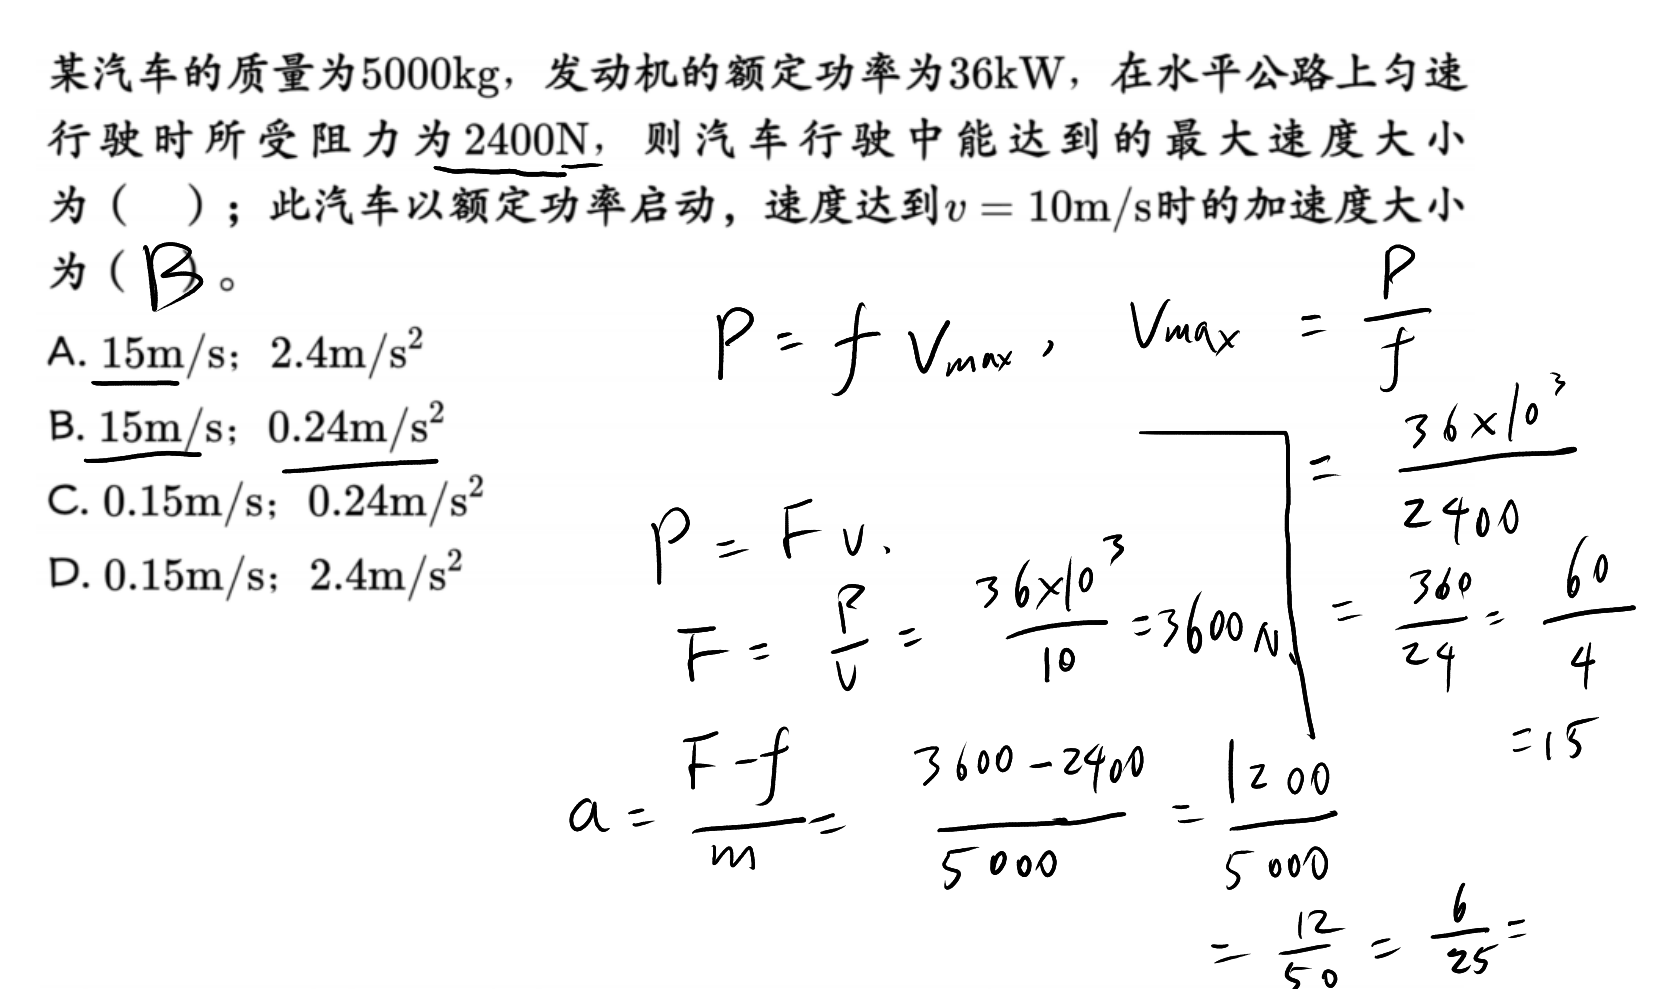 某汽车的质量为5000kg，发动机的额定功率为36kW，在水平公路上匀速
行驶时所受阻力为2400N，则汽车行驶中能达到的最大速度大小
为（  ）；此汽车以额定功率启动，速度达到v = 10m/s时的加速度大小
为（B）。
A. 15m/s；2.4m/s²
B. 15m/s；0.24m/s²
C. 0.15m/s；0.24m/s²
D. 0.15m/s；2.4m/s²
P = f Vmax , Vmax = P/f
= 36×10³/2400
= 360/24 = 60/4
= 15
P = Fv.
F = P/v = 36×10³/10 = 3600N
a = (F-f)/m = (3600-2400)/5000 = 1200/5000
= 12/50 = 6/25 =